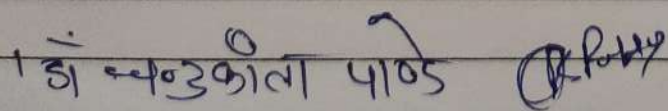 1 डॉ चन्द्रकांता पाण्डे